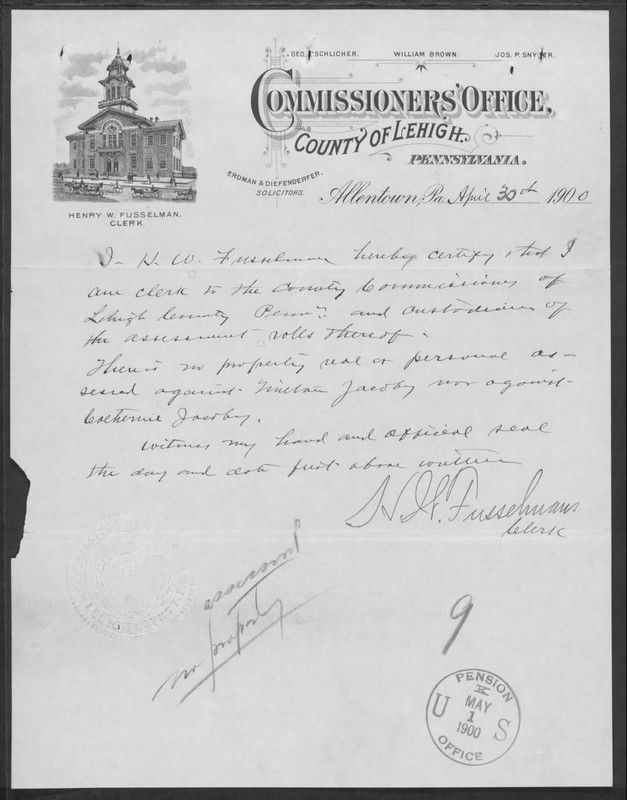 GEO. SCHLICHER. WILLIAM BROWN. JOS. P. SNYDER.
COMMISSIONERS' OFFICE,
COUNTY OF LEHIGH.
PENNSYLVANIA.
ERDMAN & DIEFENDERFER,
SOLICITORS.
HENRY W. FUSSELMAN,
CLERK.
Allentown, Pa. April 30th 1900
I H. W. Fusselman hereby certify that I
am clerk to the County Commissioners of
Lehigh County Penna. and custodian of
the assessment rolls thereof.
There is no property real or personal as-
sessed against Jacoby nor against
Catherine Jacoby.
Witness my hand and official seal
the day and date first above written
H. W. Fusselman
Clerk
assessment
no property
9
PENSION
K
U MAY S
1
1900
OFFICE